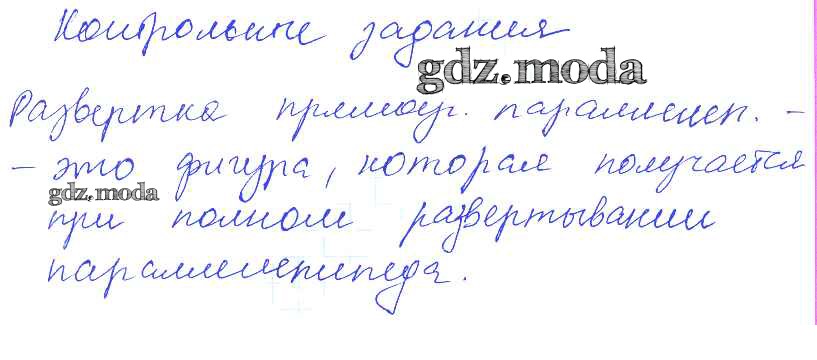 Контрольные задания
gdz.moda
Развертка прямоуг. параллелеп. -
- это фигура, которая получается
gdz.moda
при полном развертывании
параллелепипеда.